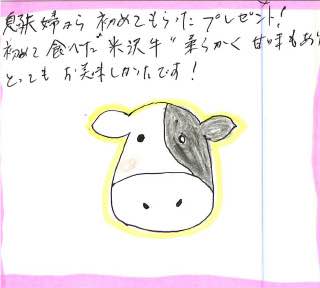 見夫婦から 初めてもらった プレゼント!
初めて 食べた "米沢牛" 柔らかく 甘味もあり
とっても お美味しかったです!